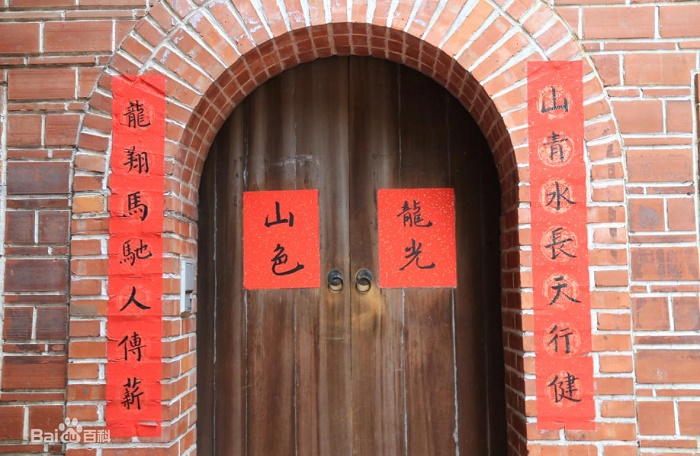 山青水長天行健
龍光
山色
龍翔馬馳人傳薪
Bai百科